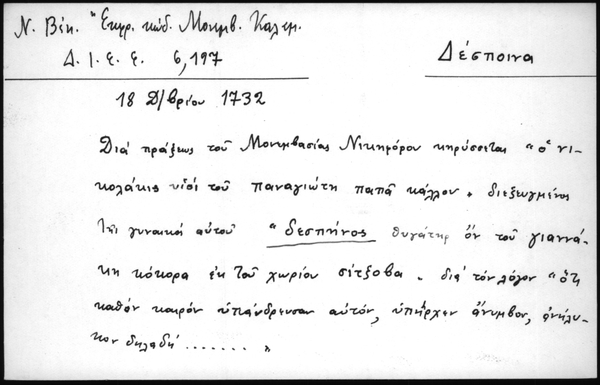 Ν. Βέη. "Εκφρ. κώδ. Μονεμβ. Καλαμ.
Δ. Ι. Ε. Ε. 6, 197
Δέσποινα
18 Δ/βρίου 1732
Διά πράξεως τοῦ Μονεμβασίας Νικηφόρου κηρύσσεται "ὁ νι-
κολάκις υἱός τοῦ παναγιώτη παπᾶ κάλλου" διεζευγμένος
τῆς γυναικός αὐτοῦ "δεσπήνος θυγάτηρ ὄν τοῦ γιαννά-
κη κόκορα ἐκ τοῦ χωρίου σίτζοβα" διά τόν λόγον "ὅτι
καθόν καιρόν ὑπάνδρευσαν αὐτόν, ὑπῆρχεν ἄνηβον, ἀνήλι-
κον δηλαδή ....... "